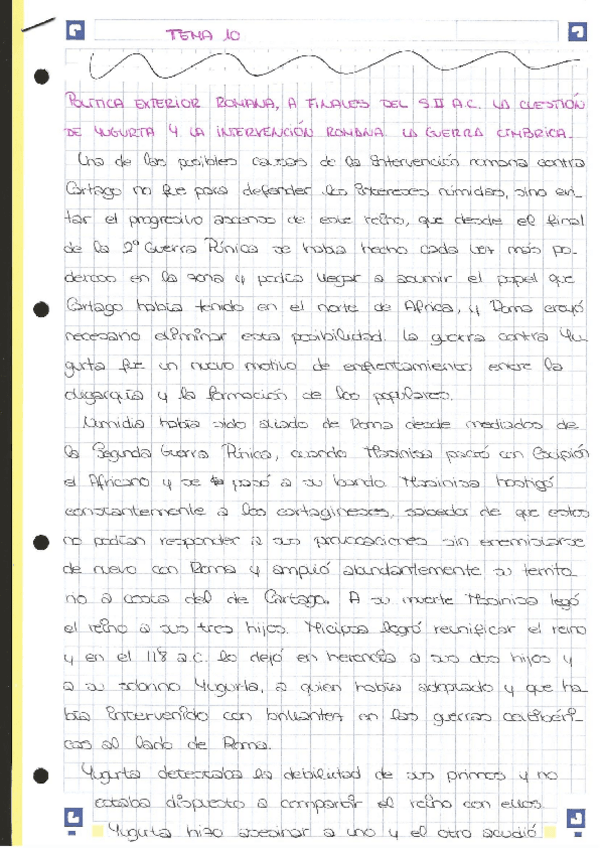 TEMA 10
POLITICA EXTERIOR ROMANA, A FINALES DEL S II A.C. LA CUESTIÓN
DE YUGURTA Y LA INTERVENCIÓN ROMANA. LA GUERRA CIMBRICA.
Una de las posibles causas de la intervención romana contra
Cartago no fue para defender los intereses númidas, sino evi-
tar el progresivo ascenso de este reino, que desde el final
de la 2ª Guerra Púnica se había hecho cada vez más po-
deroso en la zona y podía llegar a asumir el papel que
Cartago había tenido en el norte de Africa, y Roma creyó
necesario eliminar esta posibilidad. La guerra contra Yu-
gurta fue un nuevo motivo de enfrentamientos entre la
oligarquía y la formación de los populares.
Numidia había sido aliado de Roma desde mediados de
la Segunda Guerra Púnica, cuando Masinisa pactó con Escipión
el Africano y se pasó a su bando. Masinisa hostigó
constantemente a los cartagineses, sabedor de que estos
no podían responder a sus provocaciones sin enemistarse
de nuevo con Roma y amplió abundantemente su territo
rio a costa del de Cartago. A su muerte Masinisa legó
el reino a sus tres hijos. Micipsa logró reunificar el reino
y en el 118 a.c. lo dejó en herencia a sus dos hijos y
a su sobrino Yugurta, a quien había adoptado y que ha-
bía intervenido con brillantez en las guerras celtibéri-
cas al lado de Roma.
Yugurta detectaba la debilidad de sus primos y no
estaba dispuesto a compartir el reino con ellos.
Yugurta hizo asesinar a uno y el otro acudió